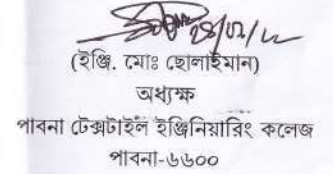 (ইঞ্জি. মোঃ ছোলাইমান)
অধ্যক্ষ
পাবনা টেক্সটাইল ইঞ্জিনিয়ারিং কলেজ
পাবনা-৬৬০০